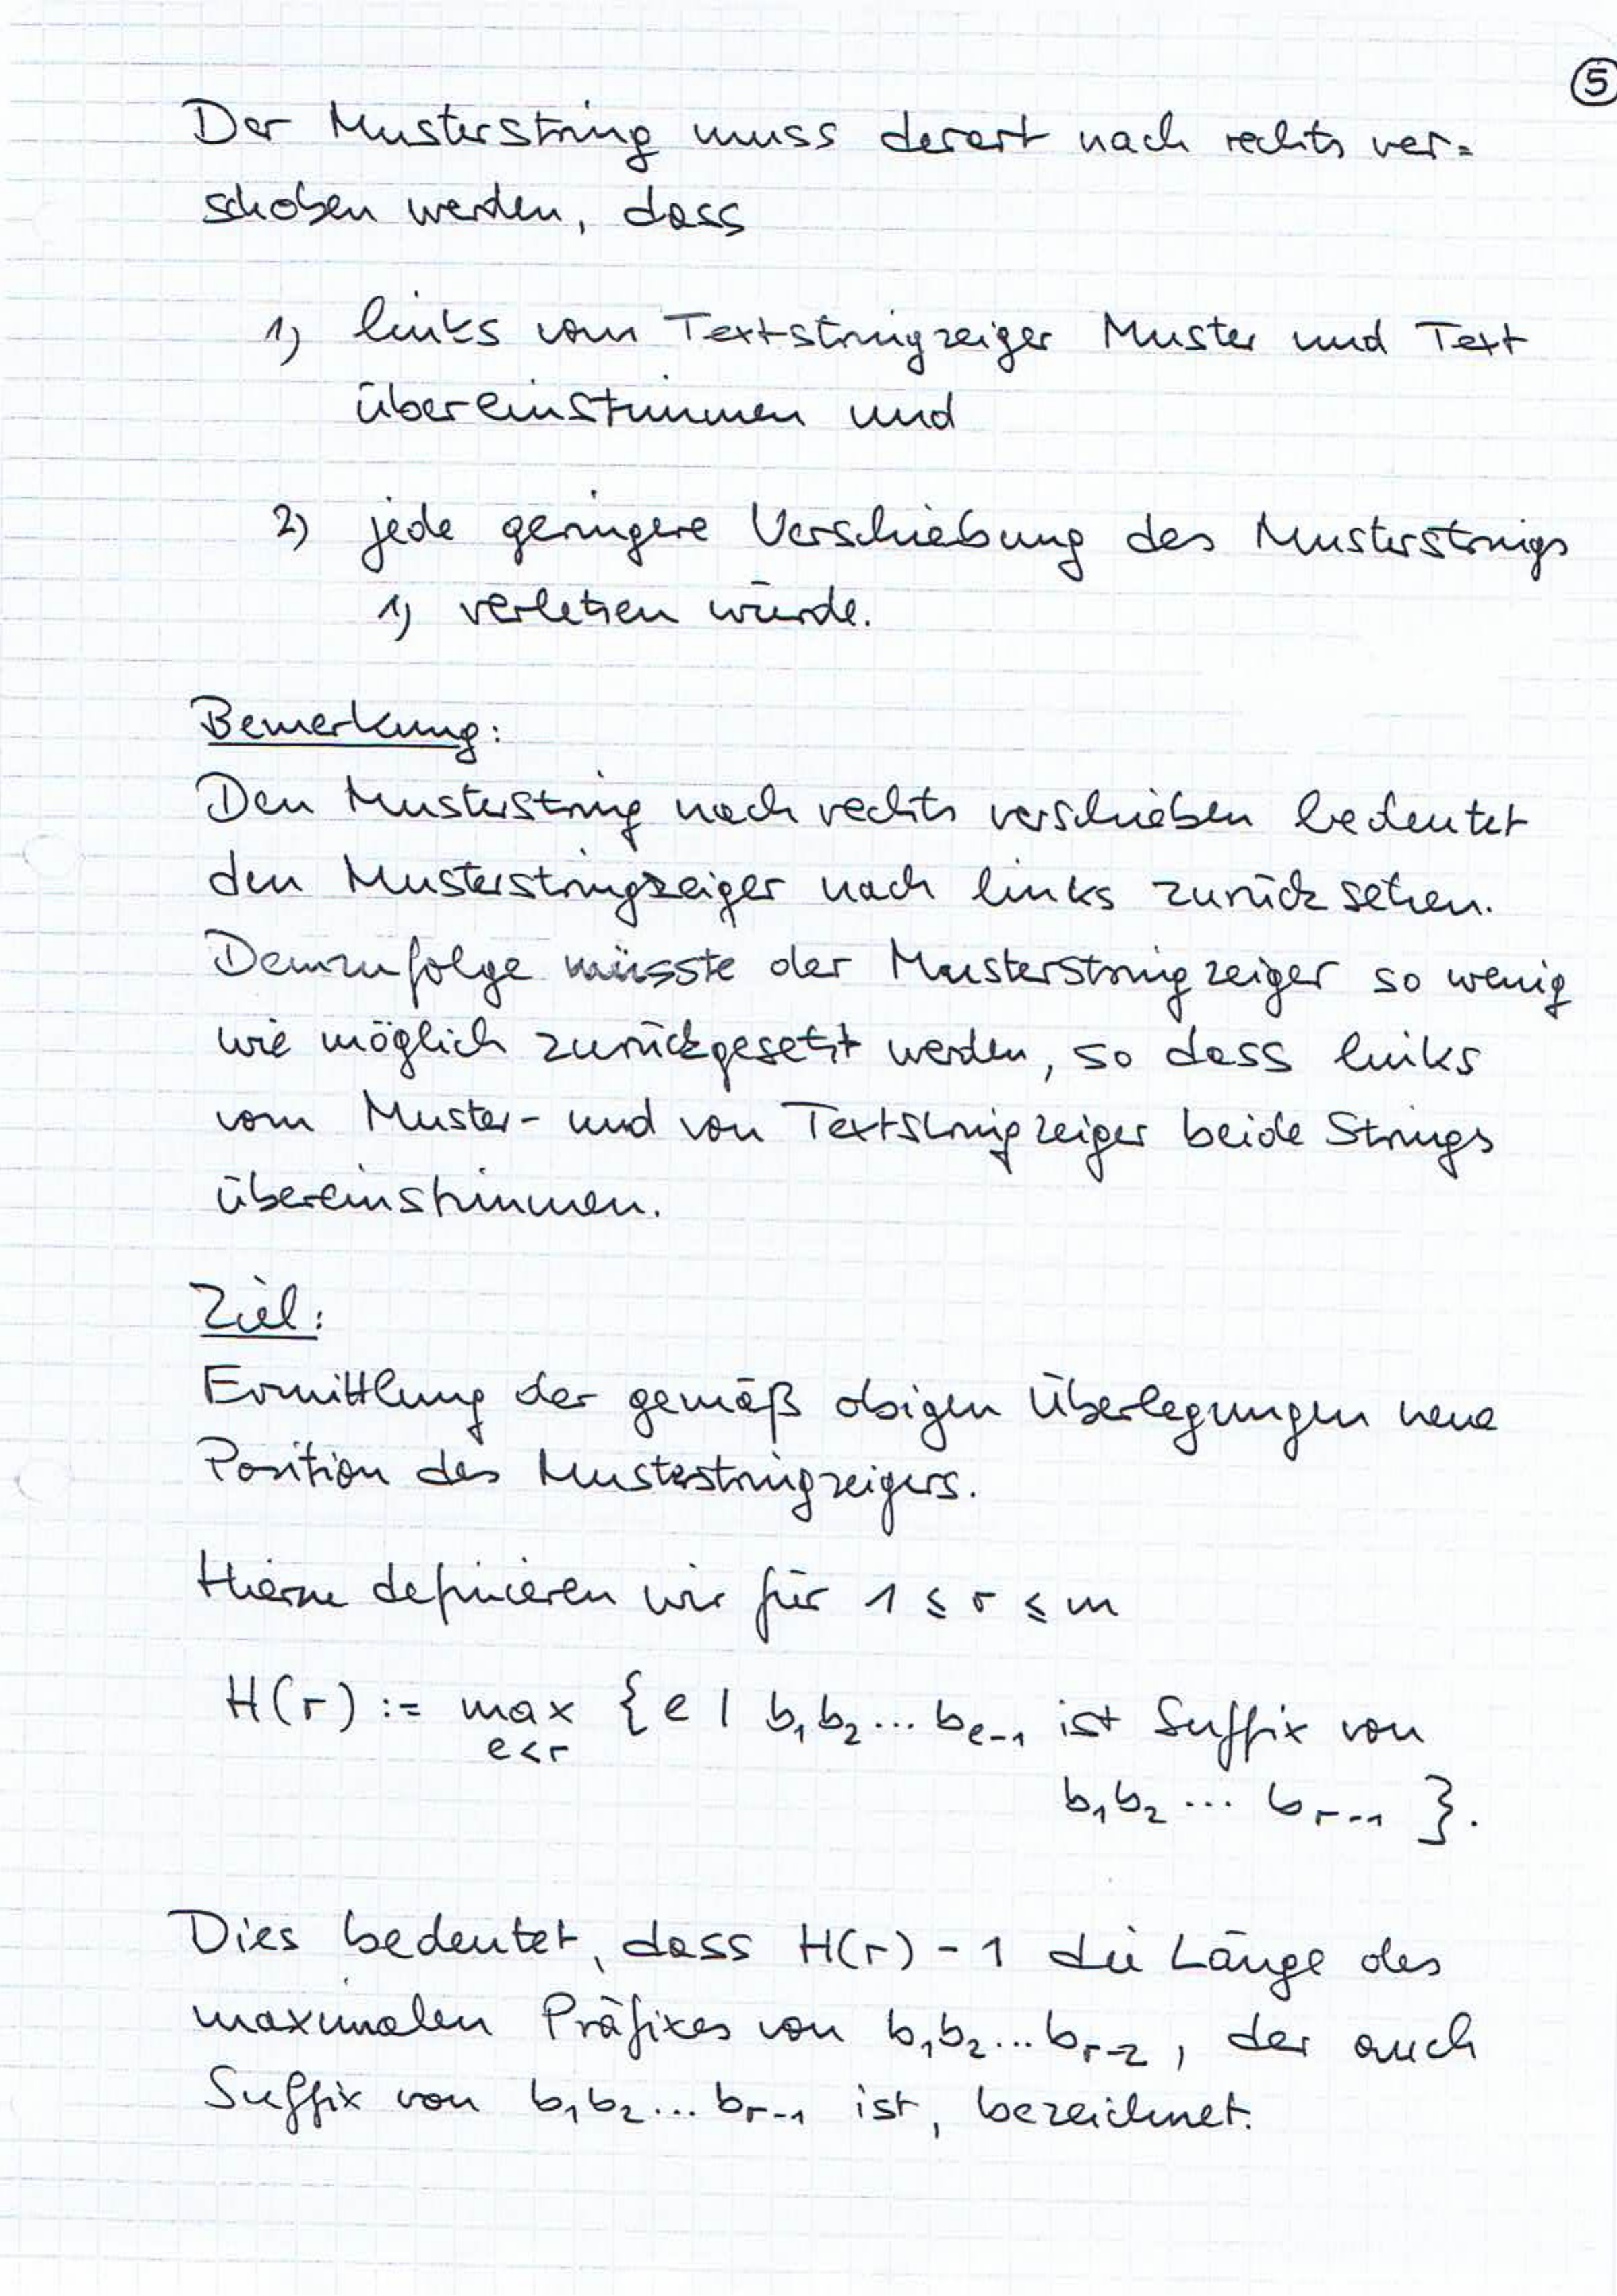 ⑤
Der Musterstring muss derart nach rechts ver=
schoben werden, dass
1) links vom Textstringzeiger Muster und Text
übereinstimmen und
2) jede geringere Verschiebung des Musterstrings
1) verletzen würde.
Bemerkung:
Den Musterstring nach rechts verschieben bedeutet
den Musterstringzeiger nach links zurücksetzen.
Demzufolge müsste der Musterstringzeiger so wenig
wie möglich zurückgesetzt werden, so dass links
vom Muster- und von Textstringzeiger beide Strings
übereinstimmen.
Ziel:
Ermittlung der gemäß obigen Überlegungen neue
Position des Musterstringzeigers.
Hierzu definieren wir für 1 ≤ r ≤ m
H(r) := max {e | b₁b₂...bₑ₋₁ ist Suffix von
e<r
b₁b₂ ... bᵣ₋₁ }.
Dies bedeutet, dass H(r) - 1 die Länge des
maximalen Präfixes von b₁b₂...bᵣ₋₂, der auch
Suffix von b₁b₂...bᵣ₋₁ ist, bezeichnet.